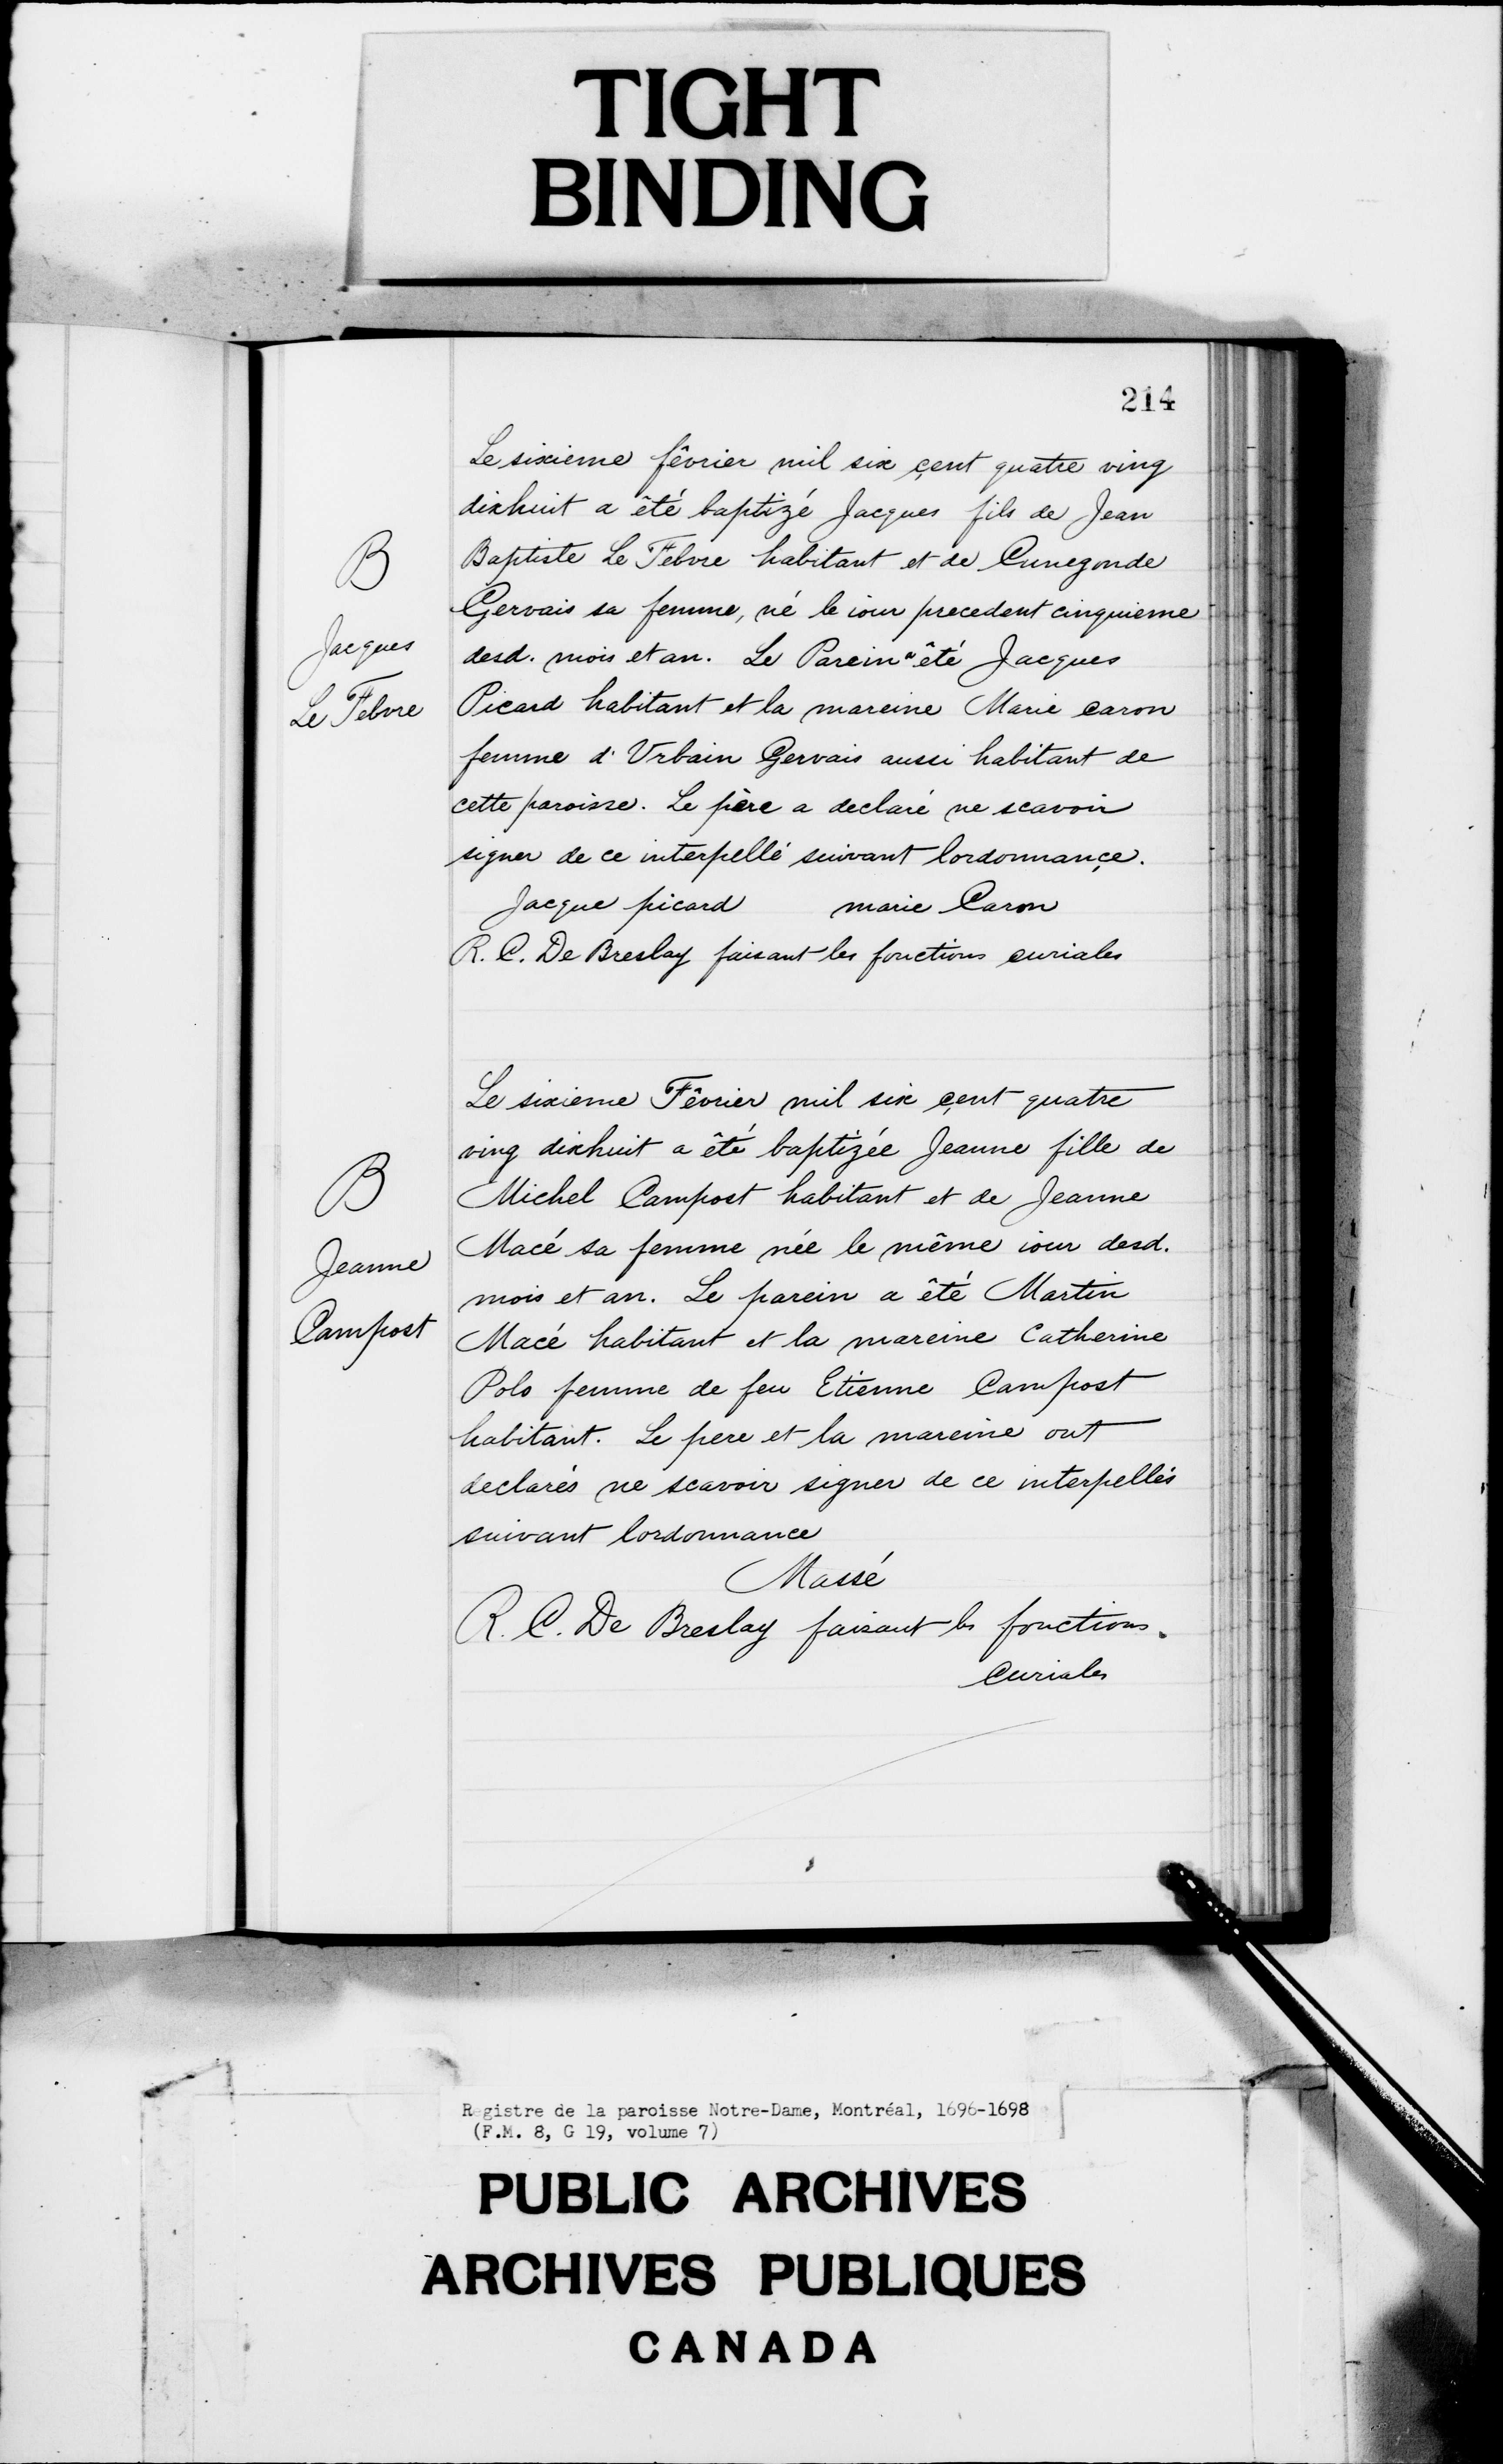 TIGHT
BINDING
214
Le sixieme fêvrier mil six çent quatre ving
dixhuit a êté baptizé Jacques fils de Jean
Baptiste Le Febvre habitant et de Cunegonde
Gervais sa femme, né le iour precedent cinquieme
desd. mois et an. Le Parein a êté Jacques
Picard habitant et la mareine Marie caron
femme d'Urbain Gervais aussi habitant de
cette paroisse. Le père a declaré ne scavoir
signer de ce interpellé suivant lordonnançe.
Jacque picard marie Caron
R. C. De Breslay faisant les fonctions curiales
B
Jacques
Le Febvre
Le sixieme Fêvrier mil six çent quatre
ving dixhuit a êté baptizée Jeanne fille de
Michel Campost habitant et de Jeanne
Macé sa femme née le même iour desd.
mois et an. Le parein a êté Martin
Macé habitant et la mareine Catherine
Polo femme de feu Etienne Campost
habitant. Le pere et la mareine ont
declarés ne scavoir signer de ce interpellés
suivant lordonnance
Massé
R. C. De Breslay faisant les fonctions.
Curiales
B
Jeanne
Campost
Registre de la paroisse Notre-Dame, Montréal, 1696-1698
(F.M. 8, G 19, volume 7)
PUBLIC ARCHIVES
ARCHIVES PUBLIQUES
CANADA